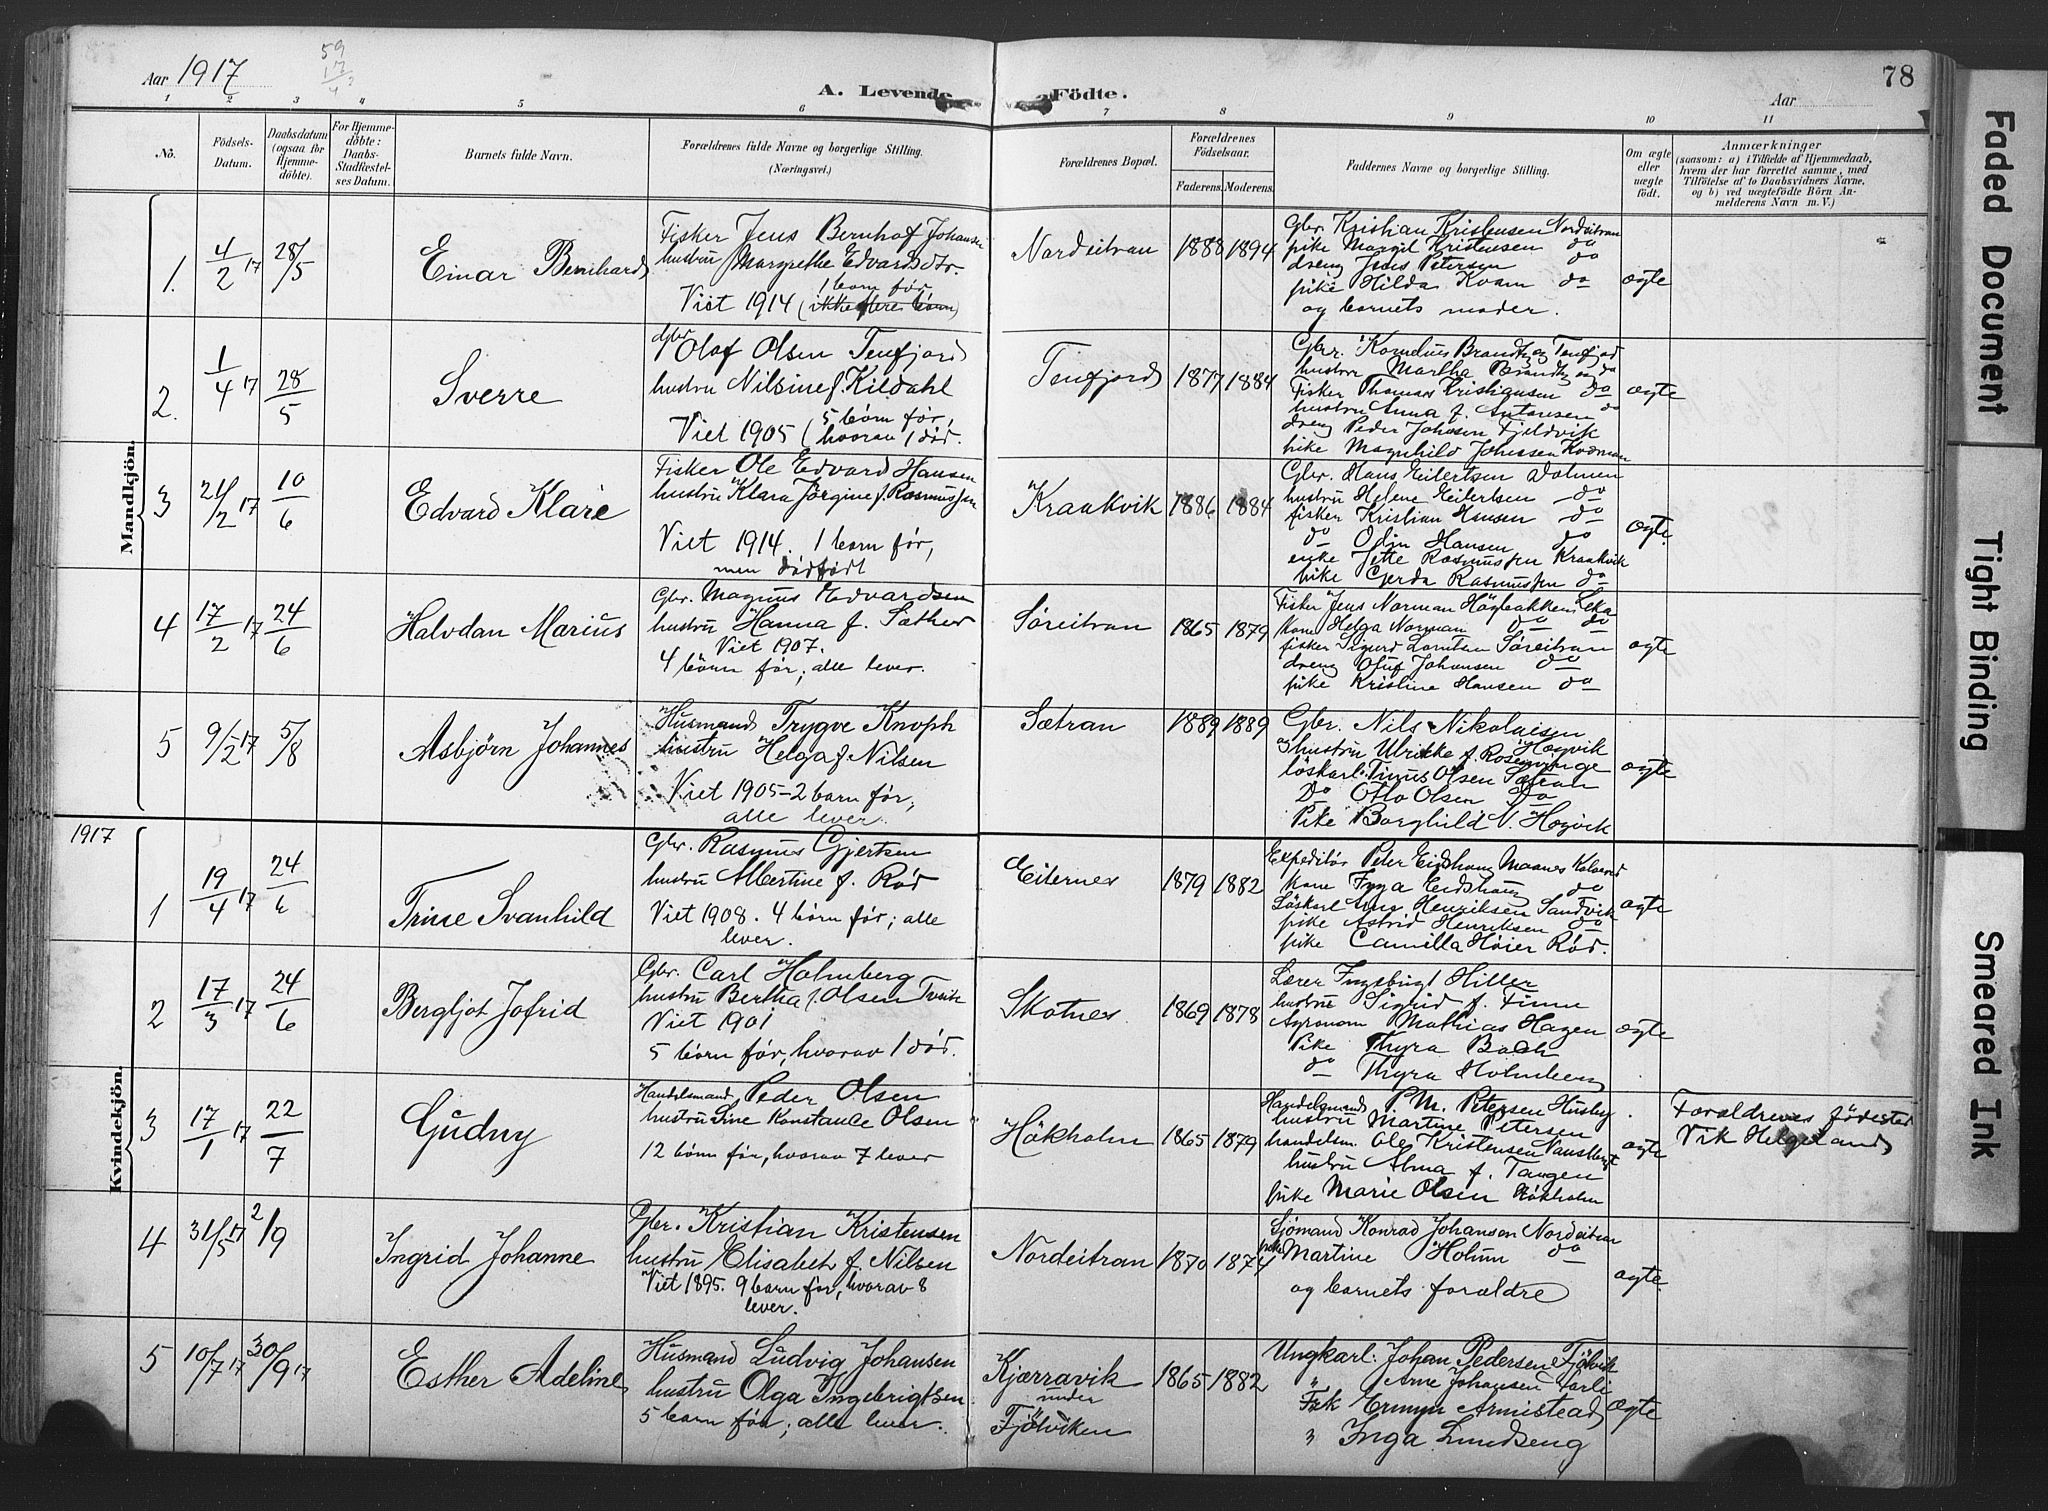 Aar 1917
59
17
78
A. Levende Födte.
Aar
1 2 3 4 5 6 7 8 9 10 11
No.
Födsels-Datum.
Daabsdatum (ogsaa for Hjemmedöbte).
For Hjemmedöbte: Daabs-Stadfæstelses Datum.
Barnets fulde Navn.
Forældrenes fulde Navne og borgerlige Stilling.
(Næringsvei.)
Forældrenes Bopæl.
Forældrenes Födselsaar.
Faderens. Moderens.
Faddernes Navne og borgerlige Stilling.
Om ægte eller uægte födt.
Anmærkninger
(saasom: a) i Tilfælde af Hjemmedaab,
hvem der har forrettet samme, med
Tilföielse af to Daabsvidners Navne,
og b) ved uægtefödte Börn Anmelderens Navn m. V.)
Mandkjön.
1. 4/2 17 28/5 Einar Bernhard
Fisker Jens Bernhof Johansen
hustru Margrethe Edvardsdtr.
1 barn før
Viet 1914 (ikke flere børn)
Nordeitran 1888 1894
Gbr. Kristian Kristensen Nordeitran
pike Margit Kristensen do
dreng Jens Petersen
pike Hilda Kvam do
og barnets moder.
ægte
2. 1/4 17 28/5 Sverre
Gbr Olaf Olsen Tenfjord
hustru Nilsine f. Kildahl
Viet 1905 (5 børn før, hvorav 1 død.
Tenfjord 1877 1884
Gbr. Kornelius Tenfjord
hustru Martha do
Fisker Thomas Kristiansen do
hustru Anna f. Antonsen do
dreng Peder Johnsen Fjeldvik
pike Magnhild Johnsen
ægte
3 21/2 17 10/6 Edvard Klare
Fisker Ole Edvard Hansen
hustru Klara Jørgine f. Rasmussen
Viet 1914. 1 barn før,
men dødfødt
Kraakvik 1886 1884
Gbr. Hans Eilertsen Dolmen
hustru Helene Eilertsen do
fisker Kristian Hansen do
do Odin Hansen do
enke Jette Rasmussen Kraakvik
pike Gerda Rasmussen do
ægte.
4 17/2 17 24/6 Halvdan Marius
Gbr. Magnus Edvardsen
hustru Hanna f. Sæther
Viet 1907.
4 børn før; alle lever.
Søreitran 1865 1879
Fisker Jens Norman Høgbakken Leka
Kone Helga Norman do do
fisker Sigurd Lorntsen Søreitran
dreng Oluf Johansen do
pike Kristine Hansen do
ægte
5 9/2 17 5/8 Asbjørn Johannes
Husmand Trygve Knoph
hustru Helga f. Nilsen
Viet 1905 - 2 barn før,
alle lever.
Sætran 1889 1889
Gbr. Nils Nikolaisen Høgvik
hustru Ulrikke f. Rosenvinge
løskarl: Tinus Olsen Sætran
Do Otto Olsen Do
Pike Borghild N. Høgvik
ægte
1917
Kvindekjön.
1 19/4 17 24/6 Trine Svanhild
Gbr. Rasmus Gjertsen
hustru Albertine f. Rød
Viet 1908. 4 børn før; alle
lever.
Eiternes 1879 1882
Expeditør Peter Eidshaug Maanes Kolvereid
Kone Eidshaug do
Løskarl Arne Henriksen Sandvik
pike Astrid Henriksen do
pike Camilla Høier Rød.
ægte
2 17/3 17 24/6 Bergljot Jofrid
Gbr. Carl Holmberg
hustru Bertha f. Olsen
Viet 1901
5 børn før, hvorav 1 død.
Skotnes 1869 1878
Lærer Ingebrigt Hiller
hustru Sigrid f. Finne
Agronom Mathias Hagen
Pike Thyra Bach
do Thyra Holmberg
ægte
3 17/1 17 22/7 Gudny
Handelsmand Peder Olsen
hustru Sine Konstance Olsen
12 børn før, hvorav 7 lever
Hökholm 1865 1879
Handelsmand P.M. Petersen Husby
hustru Martine Petersen
handelsm. Ole Kristensen
hustru Alma f. Tangen
pike Marie Olsen Hökholm
ægte
Foræ͏ldrenes fødested
Vik Helgeland
4 31/5 17 2/9 Ingrid Johanne
Gbr. Kristian Kristensen
hustru Elisabet f. Nilsen
Viet 1895. 9 børn før, hvorav 8
lever.
Nordeitran 1870 1874
Sjømand Konrad Johansen Nordeitran
pike Martine Holum do
og barnets forældre
ægte.
5 10/7 17 30/9 17 Esther Adeline
Husmand Ludvig Johansen
hustru Olga Ingebrigtsen
5 børn før; alle lever.
Kjærravik
under
Fjölviken
1865 1882
Ungkarl: Johan Pedersen Fjölvik
" Arne Johansen
Frk Ermyn Armistead
" Inga Lundseng
ægte
Faded Document
Tight Binding
Smeared Ink